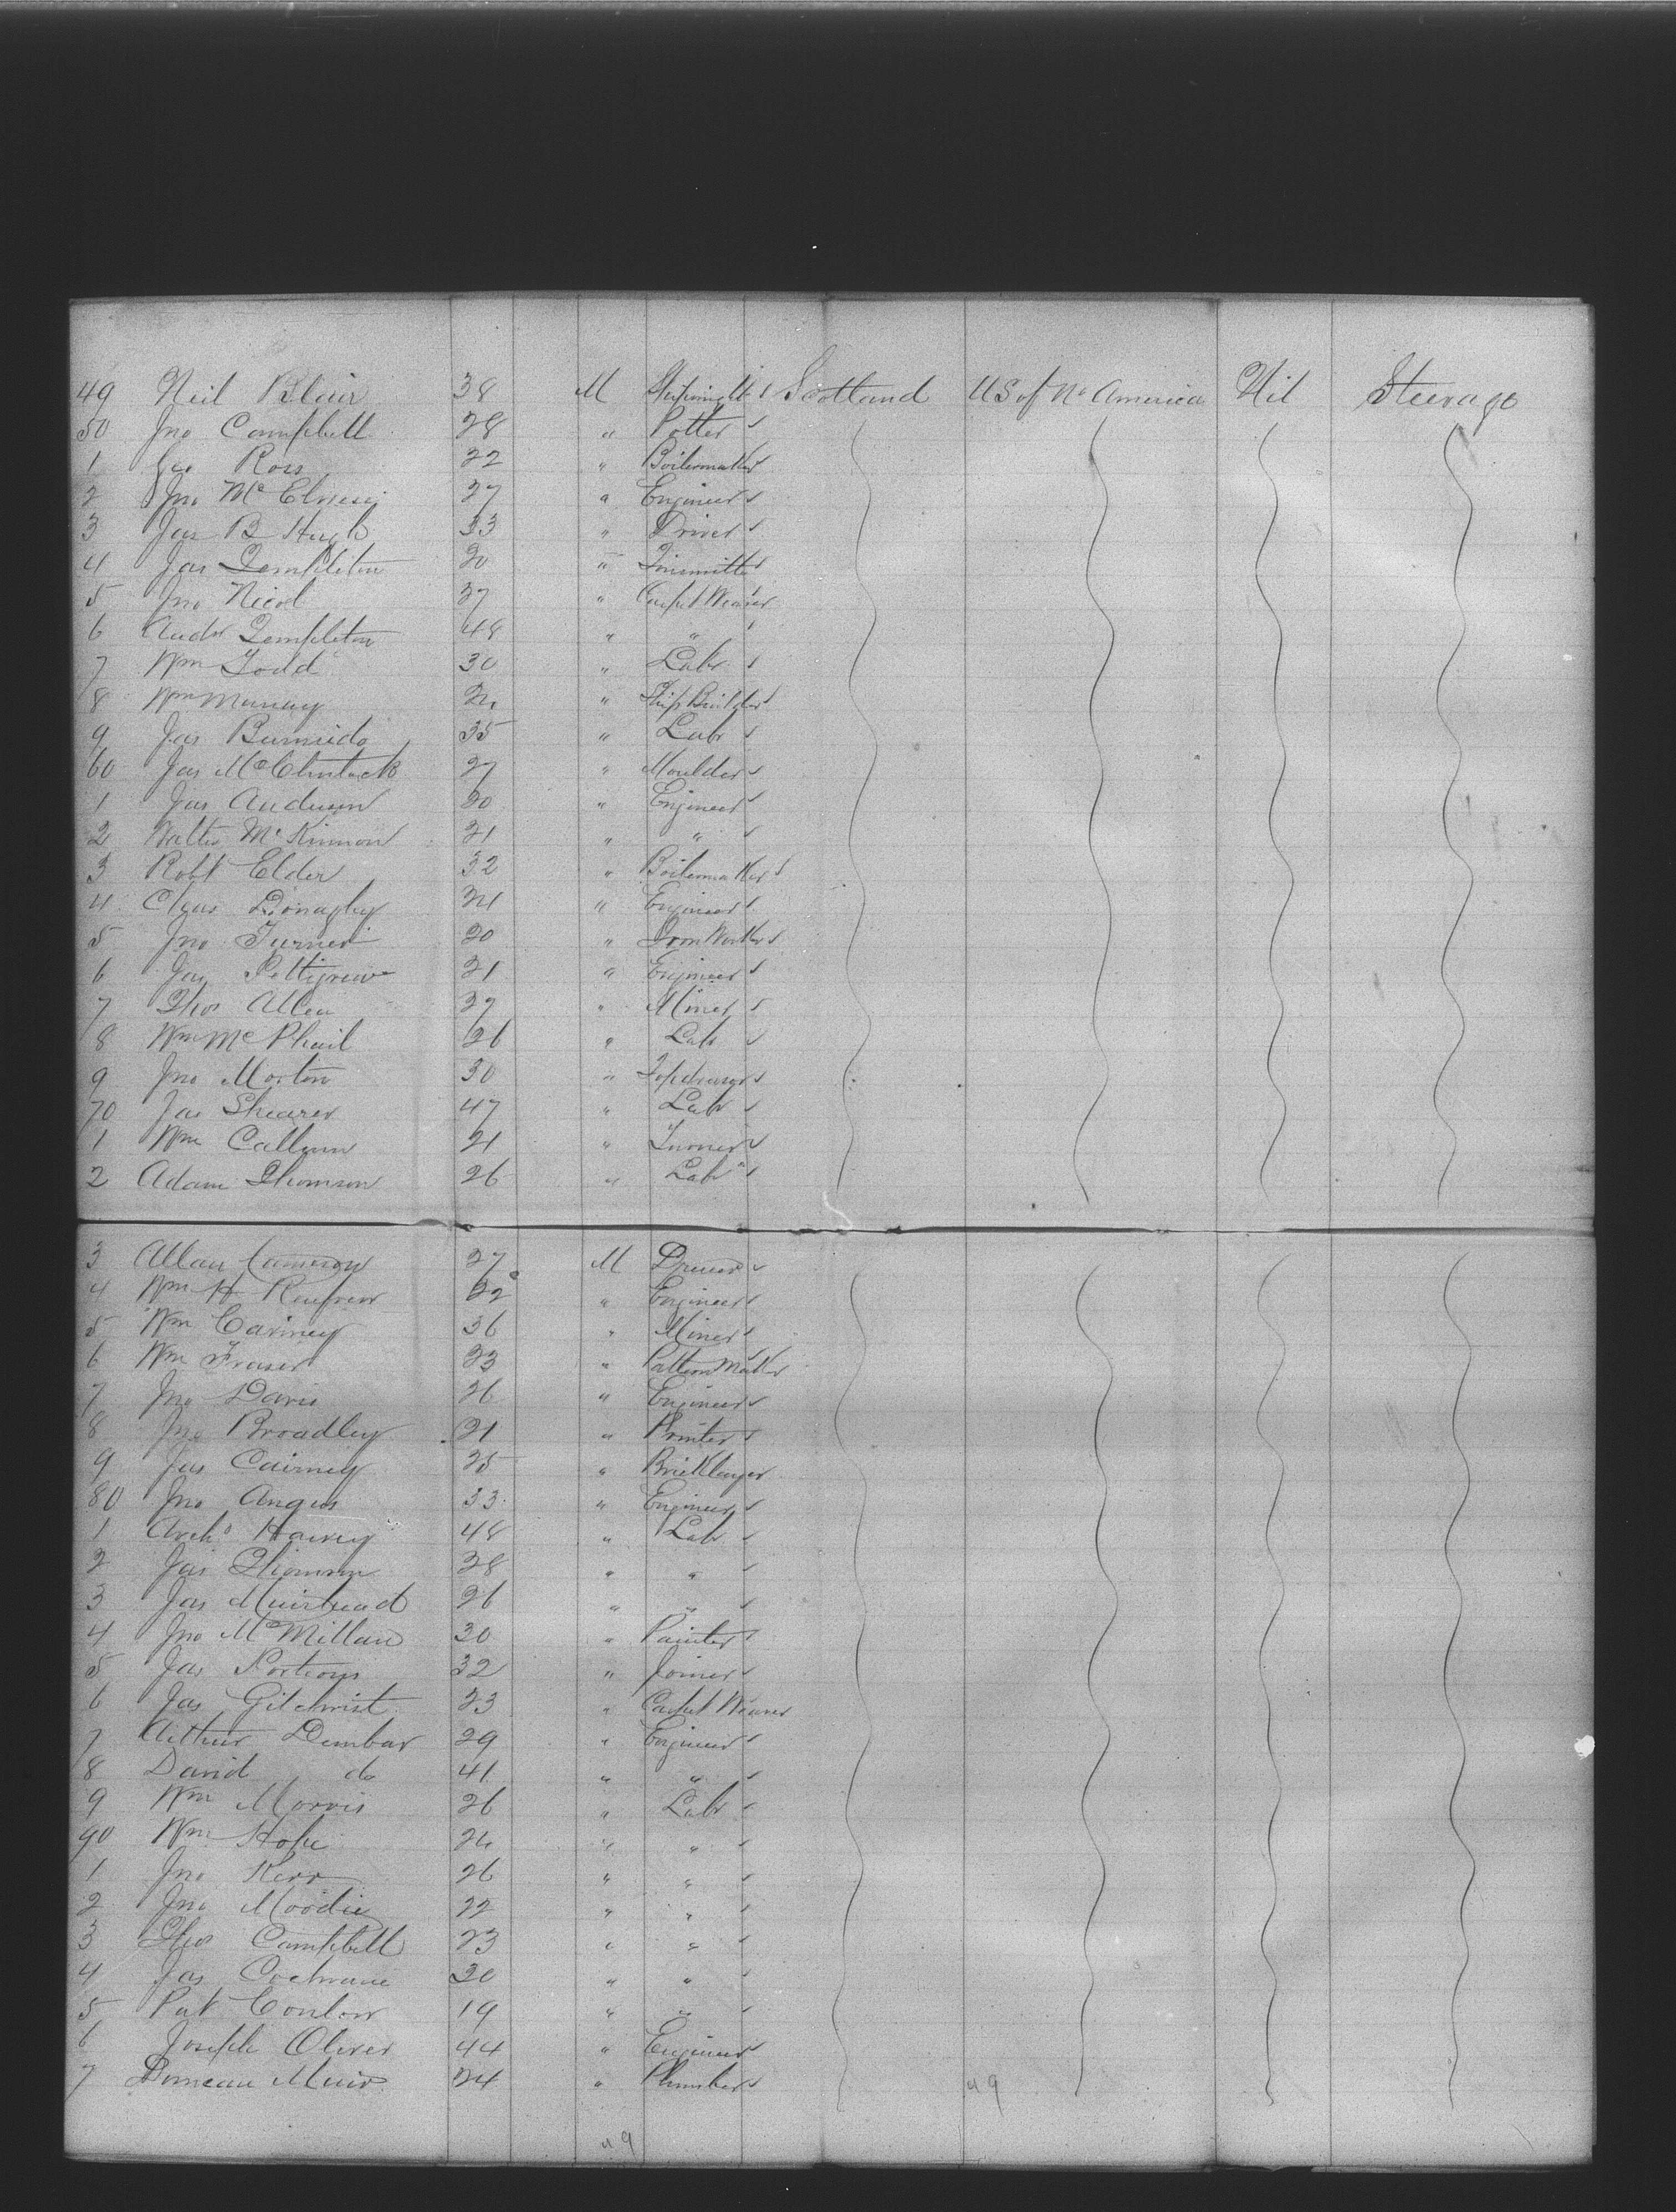 49 Neil Blair 38 M Shipsmith Scotland US of No America Nil Steerage
50 Jno Campbell 28 " Potter
1 Geo Ross 22 " Boilermaker
2 Jno Mc 27 " Engineer
3 Jas B Hugh 33 " Driver
4 Jas Templeton 20 " Tinsmith
5 Jno Nicol 37 " Carpet Weaver
6 Andw Templeton 48 " "
7 Wm Todd 30 " Labr
8 Wm Murray " Ship Builder
9 Jas Burnside 35 " Labr
60 Jas McClintock 27 " Moulder
1 Jas Anderson 20 " Engineer
2 Walter McKinnon 21 " "
3 Robt Elder 32 " Boilermaker
4 Chas Donaghy " Engineer
5 Jno Turner 20 " Iron Worker
6 Jas Pettigrew 21 " Engineer
7 Thos Allen 37 " Miner
8 Wm McPhail 26 " Labr
9 Jno Morton 30 "
70 Jas Shearer 47 " Labr
1 Wm Calhoun 21 " Turner
2 Adam Thomson 26 " Labr
3 Allan Cameron 27 M
4 Wm H Renfrew 32 " Engineer
5 Wm Cairney 36 " Miner
6 Wm Fraser 23 " Pattern Maker
7 Jno Davis 26 " Engineer
8 Jno Broadley 21 " Printer
9 Jas Cairney 25 " Bricklayer
80 Jno Angus 33 " Engineer
1 Archd Harvey 48 " Labr
2 Jas Thomson 28 " "
3 Jas Muirhead 26 " "
4 Jno McMillan 30 " Painter
5 Jas Porteous 32 " Joiner
6 Jas Gilchrist 23 " Carpet Weaver
7 Arthur Dunbar 29 " Engineer
8 David do 41 " "
9 Wm Morris 26 " Labr
90 Wm Hope 24 " "
1 Jno Kerr 26 " "
2 Jno Moodie 22 " "
3 Thos Campbell 23 " "
4 Jas Cochrane 30 " "
5 Pat Conlon 19 " "
6 Joseph Oliver 44 " Engineer
7 Duncan Muir 24 " Plumber
49
49